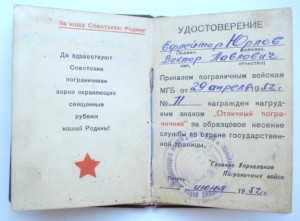 За нашу Советскую Родину!
Да здравствуют
Советские
пограничники
зорко охраняющие
священные
рубежи
нашей Родины!
УДОСТОВЕРЕНИЕ
Ефрейтор Юрлов
Виктор Павлович
Приказом пограничным войскам
МГБ от 29 апреля 1952 г.
№ 11 награжден нагруд-
ным знаком „Отличный погра-
ничник" за образцовое несение
службы по охране государствен-
ной границы.
Главное Управление
Пограничных войск
июня 1952 г.